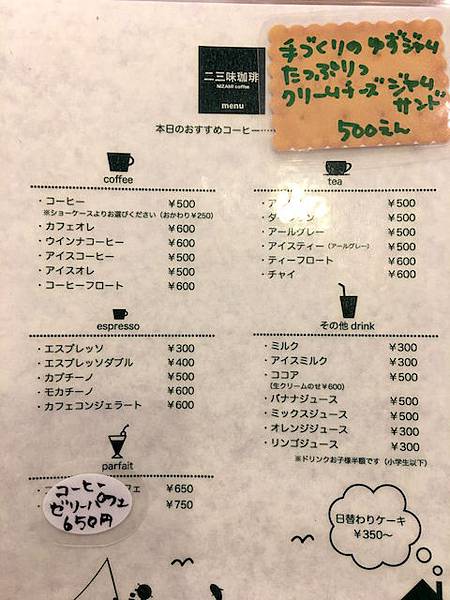 二三味珈琲
NIZAMI coffee
menu
手づくりのゆずジャム
たっぷりっ
クリームチーズジャム
サンド
500えん
本日のおすすめコーヒー……
coffee
・コーヒー ¥500
※ショーケースよりお選びください（おかわり¥250）
・カフェオレ ¥600
・ウインナコーヒー ¥600
・アイスコーヒー ¥500
・アイスオレ ¥500
・コーヒーフロート ¥600
tea
¥500
¥500
・アールグレー ¥500
・アイスティー（アールグレー） ¥500
・ティーフロート ¥600
・チャイ ¥600
espresso
・エスプレッソ ¥300
・エスプレッソダブル ¥400
・カプチーノ ¥500
・モカチーノ ¥600
・カフェコンジェラート ¥600
その他 drink
・ミルク ¥300
・アイスミルク ¥300
・ココア ¥500
（生クリームのせ¥600）
・バナナジュース ¥500
・ミックスジュース ¥500
・オレンジジュース ¥300
・リンゴジュース ¥300
※ドリンクお子様半額です（小学生以下）
parfait
フェ ¥650
¥750
コーヒー
ゼリーパフェ
650円
日替わりケーキ
¥350〜